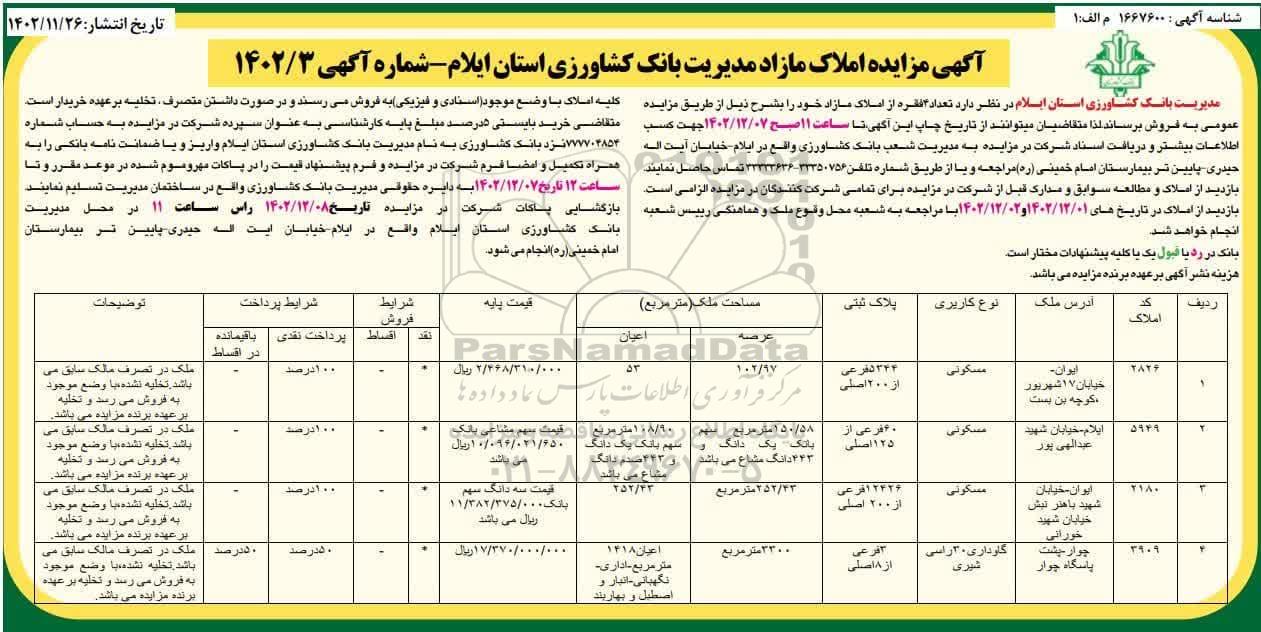 شناسه آگهی : ۱۶۶۷۶۰۰ م الف:۱
تاریخ انتشار:۱۴۰۲/۱۱/۲۶
آگهی مزایده املاک مازاد مدیریت بانک کشاورزی استان ایلام-شماره آگهی ۱۴۰۲/۳
مدیریت بانک کشاورزی استان ایلام در نظر دارد تعداد۴فقره از املاک مازاد خود را بشرح ذیل از طریق مزایده
عمومی به فروش برساند.لذا متقاضیان میتوانند از تاریخ چاپ این آگهی،تا ساعت ۱۱صبح ۱۴۰۲/۱۲/۰۷جهت کسب
اطلاعات بیشتر و دریافت اسناد شرکت در مزایده به مدیریت شعب بانک کشاورزی واقع در ایلام-خیابان آیت اله
حیدری-پایین تر بیمارستان امام خمینی (ره)مراجعه و یا از طریق شماره تلفن۳۳۳۵۰۷۵۶-۳۳۳۳۳۶۳۶ تماس حاصل نمایند.
بازدید از املاک و مطالعه سوابق و مدارک قبل از شرکت در مزایده برای تمامی شرکت کنندگان در مزایده الزامی است.
بازدید از املاک در تاریخ های ۱۴۰۲/۱۲/۰۱و۱۴۰۲/۱۲/۰۲با مراجعه به شعبه محل وقوع ملک و هماهنگی رییس شعبه
انجام خواهد شد.
بانک در رد یا قبول یک یا کلیه پیشنهادات مختار است.
هزینه نشر آگهی برعهده برنده مزایده می باشد.
کلیه املاک با وضع موجود(اسنادی و فیزیکی)به فروش می رسند و در صورت داشتن متصرف ، تخلیه برعهده خریدار است.
متقاضی خرید بایستی ۵درصد مبلغ پایه کارشناسی به عنوان سپرده شرکت در مزایده به حساب شماره
۷۷۷۷۰۴۸۵۴نزد بانک کشاورزی به نام مدیریت بانک کشاورزی استان ایلام واریز و یا ضمانت نامه بانکی را به
همراه تکمیل و امضا فرم شرکت در مزایده و فرم پیشنهاد قیمت را در پاکات مهروموم شده در موعد مقرر و تا
ساعت ۱۲ تاریخ۱۴۰۲/۱۲/۰۷به دایره حقوقی مدیریت بانک کشاورزی واقع در ساختمان مدیریت تسلیم نمایند.
بازگشایی پاکات شرکت در مزایده تاریخ۱۴۰۲/۱۲/۰۸ راس ساعت ۱۱ در محل مدیریت
بانک کشاورزی استان ایلام واقع در ایلام-خیابان ایت اله حیدری-پایین تر بیمارستان
امام خمینی(ره)انجام می شود.
ردیف کد املاک آدرس ملک نوع کاربری پلاک ثبتی مساحت ملک(مترمربع) قیمت پایه شرایط فروش شرایط پرداخت توضیحات
عرصه اعیان نقد اقساط پرداخت نقدی باقیمانده در اقساط
۱ ۲۸۲۶ ایوان-خیابان۱۷شهریور ،کوچه بن بست مسکونی ۵۳۴۴فرعی از۲۰۰اصلی ۱۰۲/۹۷ ۵۳ ۲/۴۶۸/۳۱۰/۰۰۰ ریال * - ۱۰۰درصد - ملک در تصرف مالک سابق می باشد.تخلیه نشده،با وضع موجود به فروش می رسد و تخلیه برعهده برنده مزایده می باشد.
۲ ۵۹۴۹ ایلام-خیابان شهید عبدالهی پور مسکونی ۶۰فرعی از ۱۲۵اصلی ۱۵۰/۵۸مترمربع سهم بانک یک دانگ و ۴۴۳دانگ مشاع می باشد ۱۰۸/۹۰مترمربع سهم بانک یک دانگ و ۴۴۳صدم دانگ مشاع می باشد قیمت سهم مشاعی بانک ۱۰/۰۹۶/۰۲۱/۶۵۰ریال می باشد * - ۱۰۰درصد - ملک در تصرف مالک سابق می باشد.تخلیه نشده،با وضع موجود به فروش می رسد و تخلیه برعهده برنده مزایده می باشد.
۳ ۲۱۸۰ ایوان-خیابان شهید باهنر نبش خیابان شهید خورانی مسکونی ۱۲۴۲۶فرعی از۲۰۰ اصلی ۲۵۲/۴۳مترمربع ۲۵۲/۴۳ قیمت سه دانگ سهم بانک۱۱/۳۸۲/۳۷۵/۰۰۰ ریال می باشد * - ۱۰۰درصد - ملک در تصرف مالک سابق می باشد.تخلیه نشده،با وضع موجود به فروش می رسد و تخلیه برعهده برنده مزایده می باشد.
۴ ۳۹۰۹ چوار-پشت پاسگاه چوار گاوداری۳۰راسی شیری ۳فرعی از۸اصلی ۳۳۰۰مترمربع اعیان۱۴۱۸ مترمربع-اداری-نگهبانی-انبار و اصطبل و بهاربند ۱۷/۳۷۰/۰۰۰/۰۰۰ریال * - ۵۰درصد ۵۰درصد ملک در تصرف مالک سابق می باشد.تخلیه نشده،با وضع موجود به فروش می رسد و تخلیه برعهده برنده مزایده می باشد.
ParsNamadData
مرکز فرآوری اطلاعات پارس نماد داده ها
۰۲۱-۸۸۳۴۹۶۷۰-۵